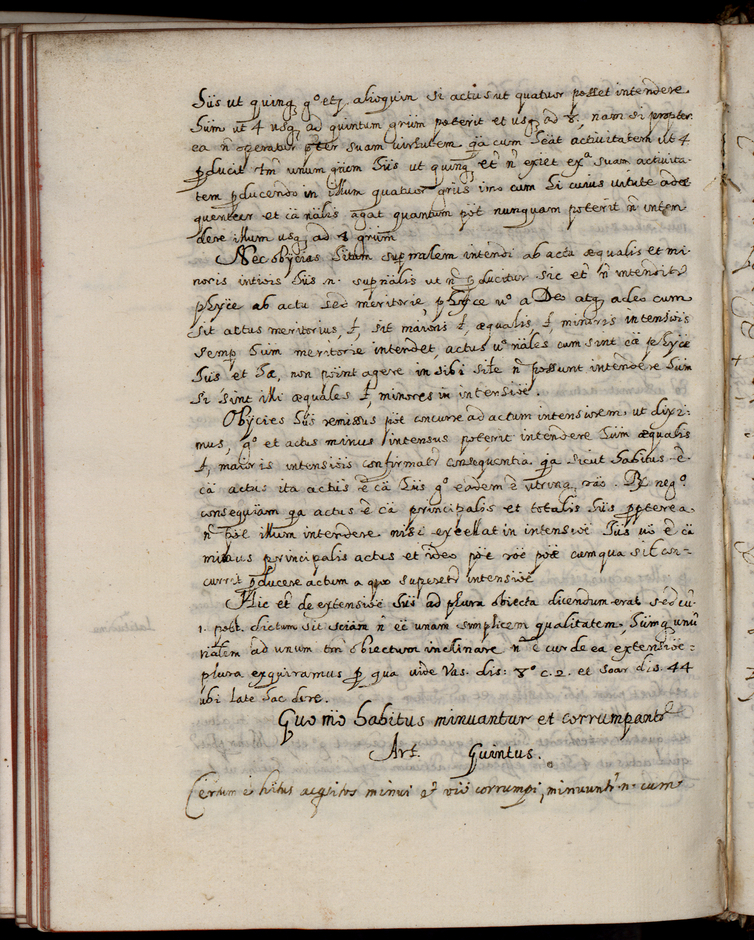 Hus ut quinq; g° et j. alioquin si actus ut quatuor posset intendere
Hum ut 4 usq; ad quintum grum poterit et usq; ad 8, nam si propter
ea n̄ operatur p̄ter suam virtutem q̄a cum heat activitatem ut 4
p̄ducit tm̄ unum grum Hus ut quinq; et n̄ exiet exᵃ suam activita-
tem p̄ducendo in illum quatuor grus imo cum H cuius virtute adae
quentur et cā nālis agat quantum pōt nunquam poterit n̄ inten
dere illum usq; ad 8 grum
Nec obijcias Hitum supr̄nalem intendi ab actu æqualis et mi-
noris intiois Hus n. supr̄nālis ut n̄ p̄ducitur sic et n̄ intendit̄r
physicè ab actu sed meritorie, physicè v° a Deo atq; adeo cum
sit actus meritorius, ł, sit maioris ł, æqualis ł, minoris intensiois
semp̄ Hum meritorie intendet, actus v° nāles cum sint cā physicè
Hus et Hæ, non point agere in sibi sile n̄ possunt intendere Hum
si sint illi æquales ł, minores in intensiōe.
Obijcies Hus remissus pōt concurre ad actum intensiorem ut dixi-
mus, g° et actus minus intensus poterit intendere Hum æqualis
ł, maioris intensiōis confirmatr consequentia q̄a sicut habitus ē
cā actus ita actus ē cā Hus g° eadem ē utrinq; rāo. R neg°
consequiam q̄a actus ē cā principalis et totalis Hus p̄pterea
n̄ pōt illum intendere nisi excellat in intensiōe Hus vō ē cā
minus principalis actus et ideo pōt rōe pōæ cumqua sit con-
currit p̄ducere actum a quo superetr intensiōe
Hic et de extensiōe Hus ad plura obiecta dicendum erat sed cū
1. post. dictum sit sciām n̄ eē unam simplicem qualitatem, Humq; unū
nālem ad unum tm̄ obiectum inclinare n̄ ē cur de ea extensiōe
plura exquiramus p̄ qua vide Vas. dis: 8° c. 2. et Soar dis. 44
ubi late hac dere.
Quo mō habitus minuantur et corrumpantr
Art. Quintus.
Certum ē hitus acq̄sitos minui et viō corrumpi, minuuntr n. cum